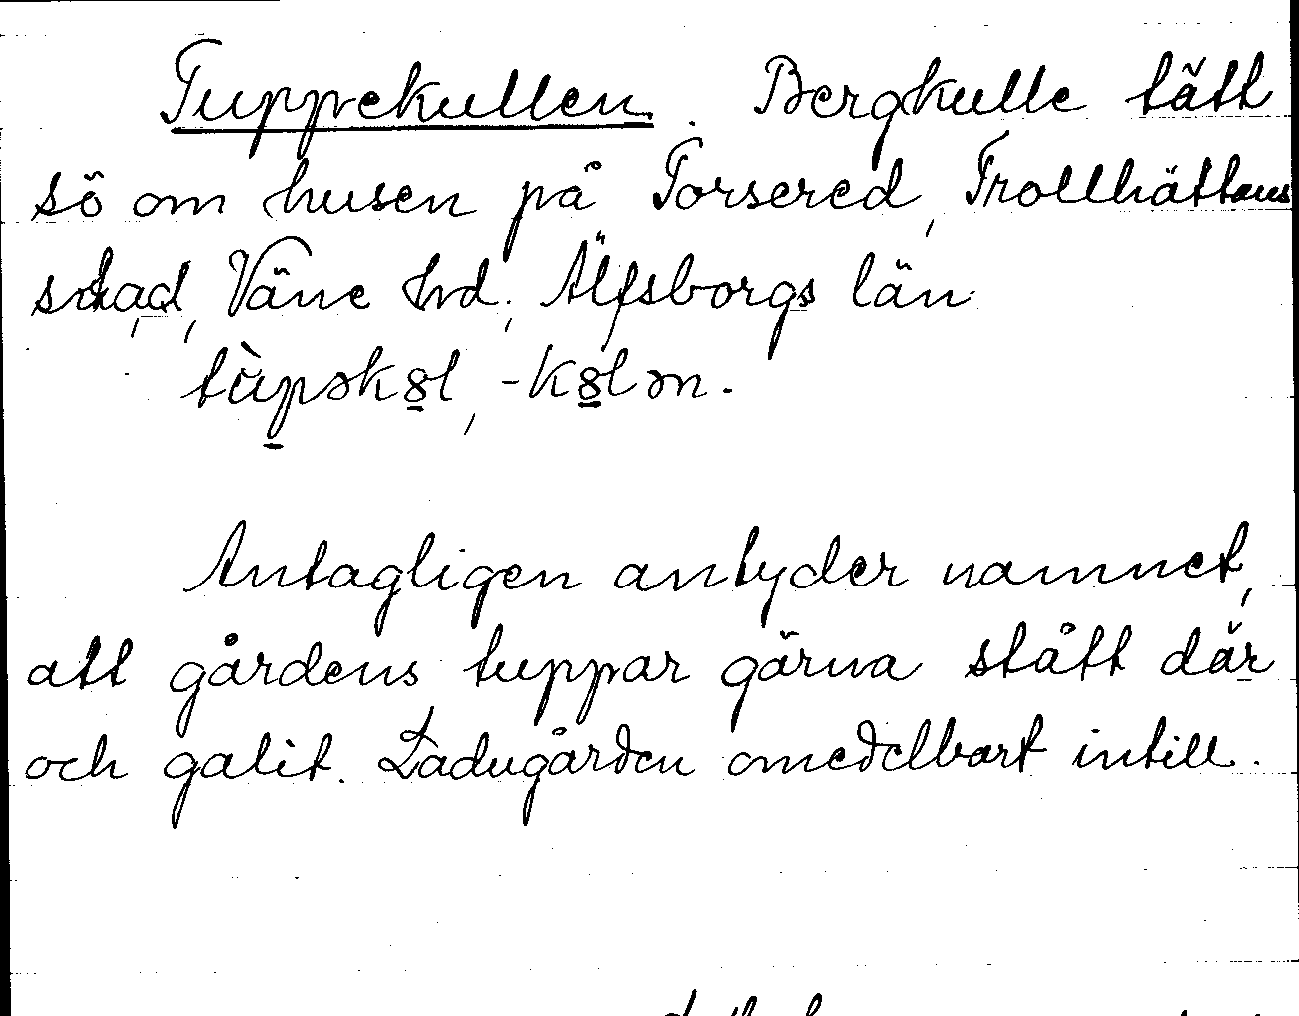 Tuppekullen. Bergkulle tätt
sö om husen på Torsered, Trollhättans
stad, Väne hd, Älfsborgs län
tùpək8l, -k8lən.
Antagligen antyder namnet,
att gårdens tuppar gärna stått där
och galit. Ladugården omedelbart intill.